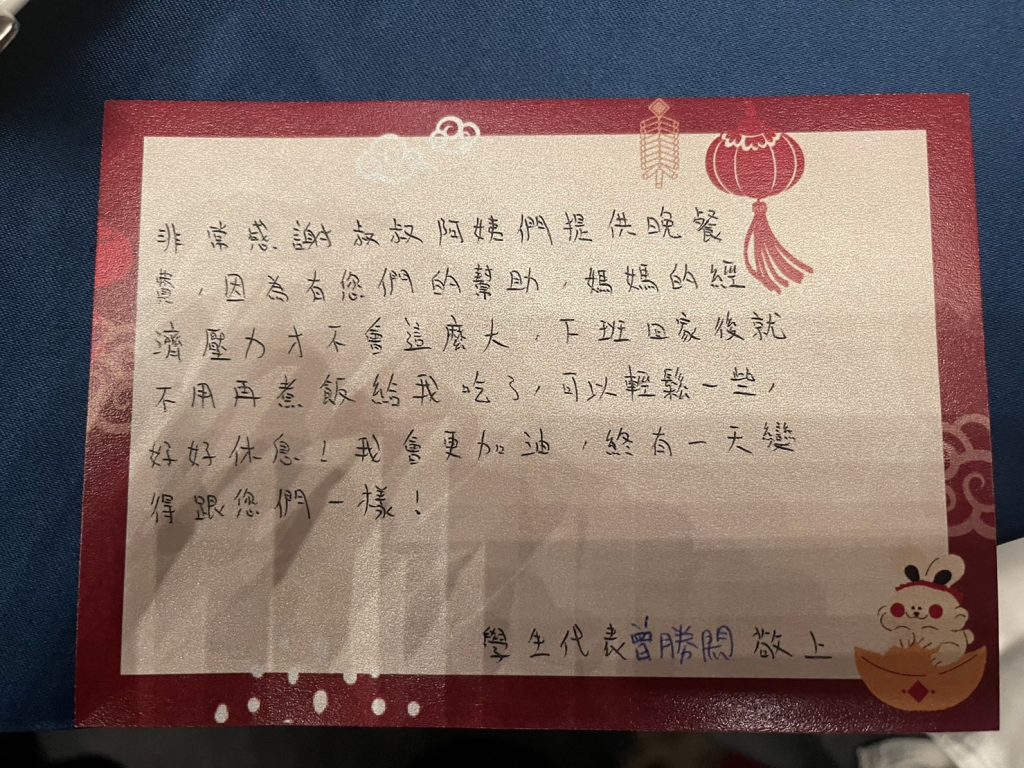 非常感謝叔叔阿姨們提供晚餐
費，因為有您們的幫助，媽媽的經
濟壓力才不會這麼大，下班回家後就
不用再煮飯給我吃了，可以輕鬆一些，
好好休息！我會更加油，終有一天變
得跟您們一樣！
學生代表曾勝閎敬上